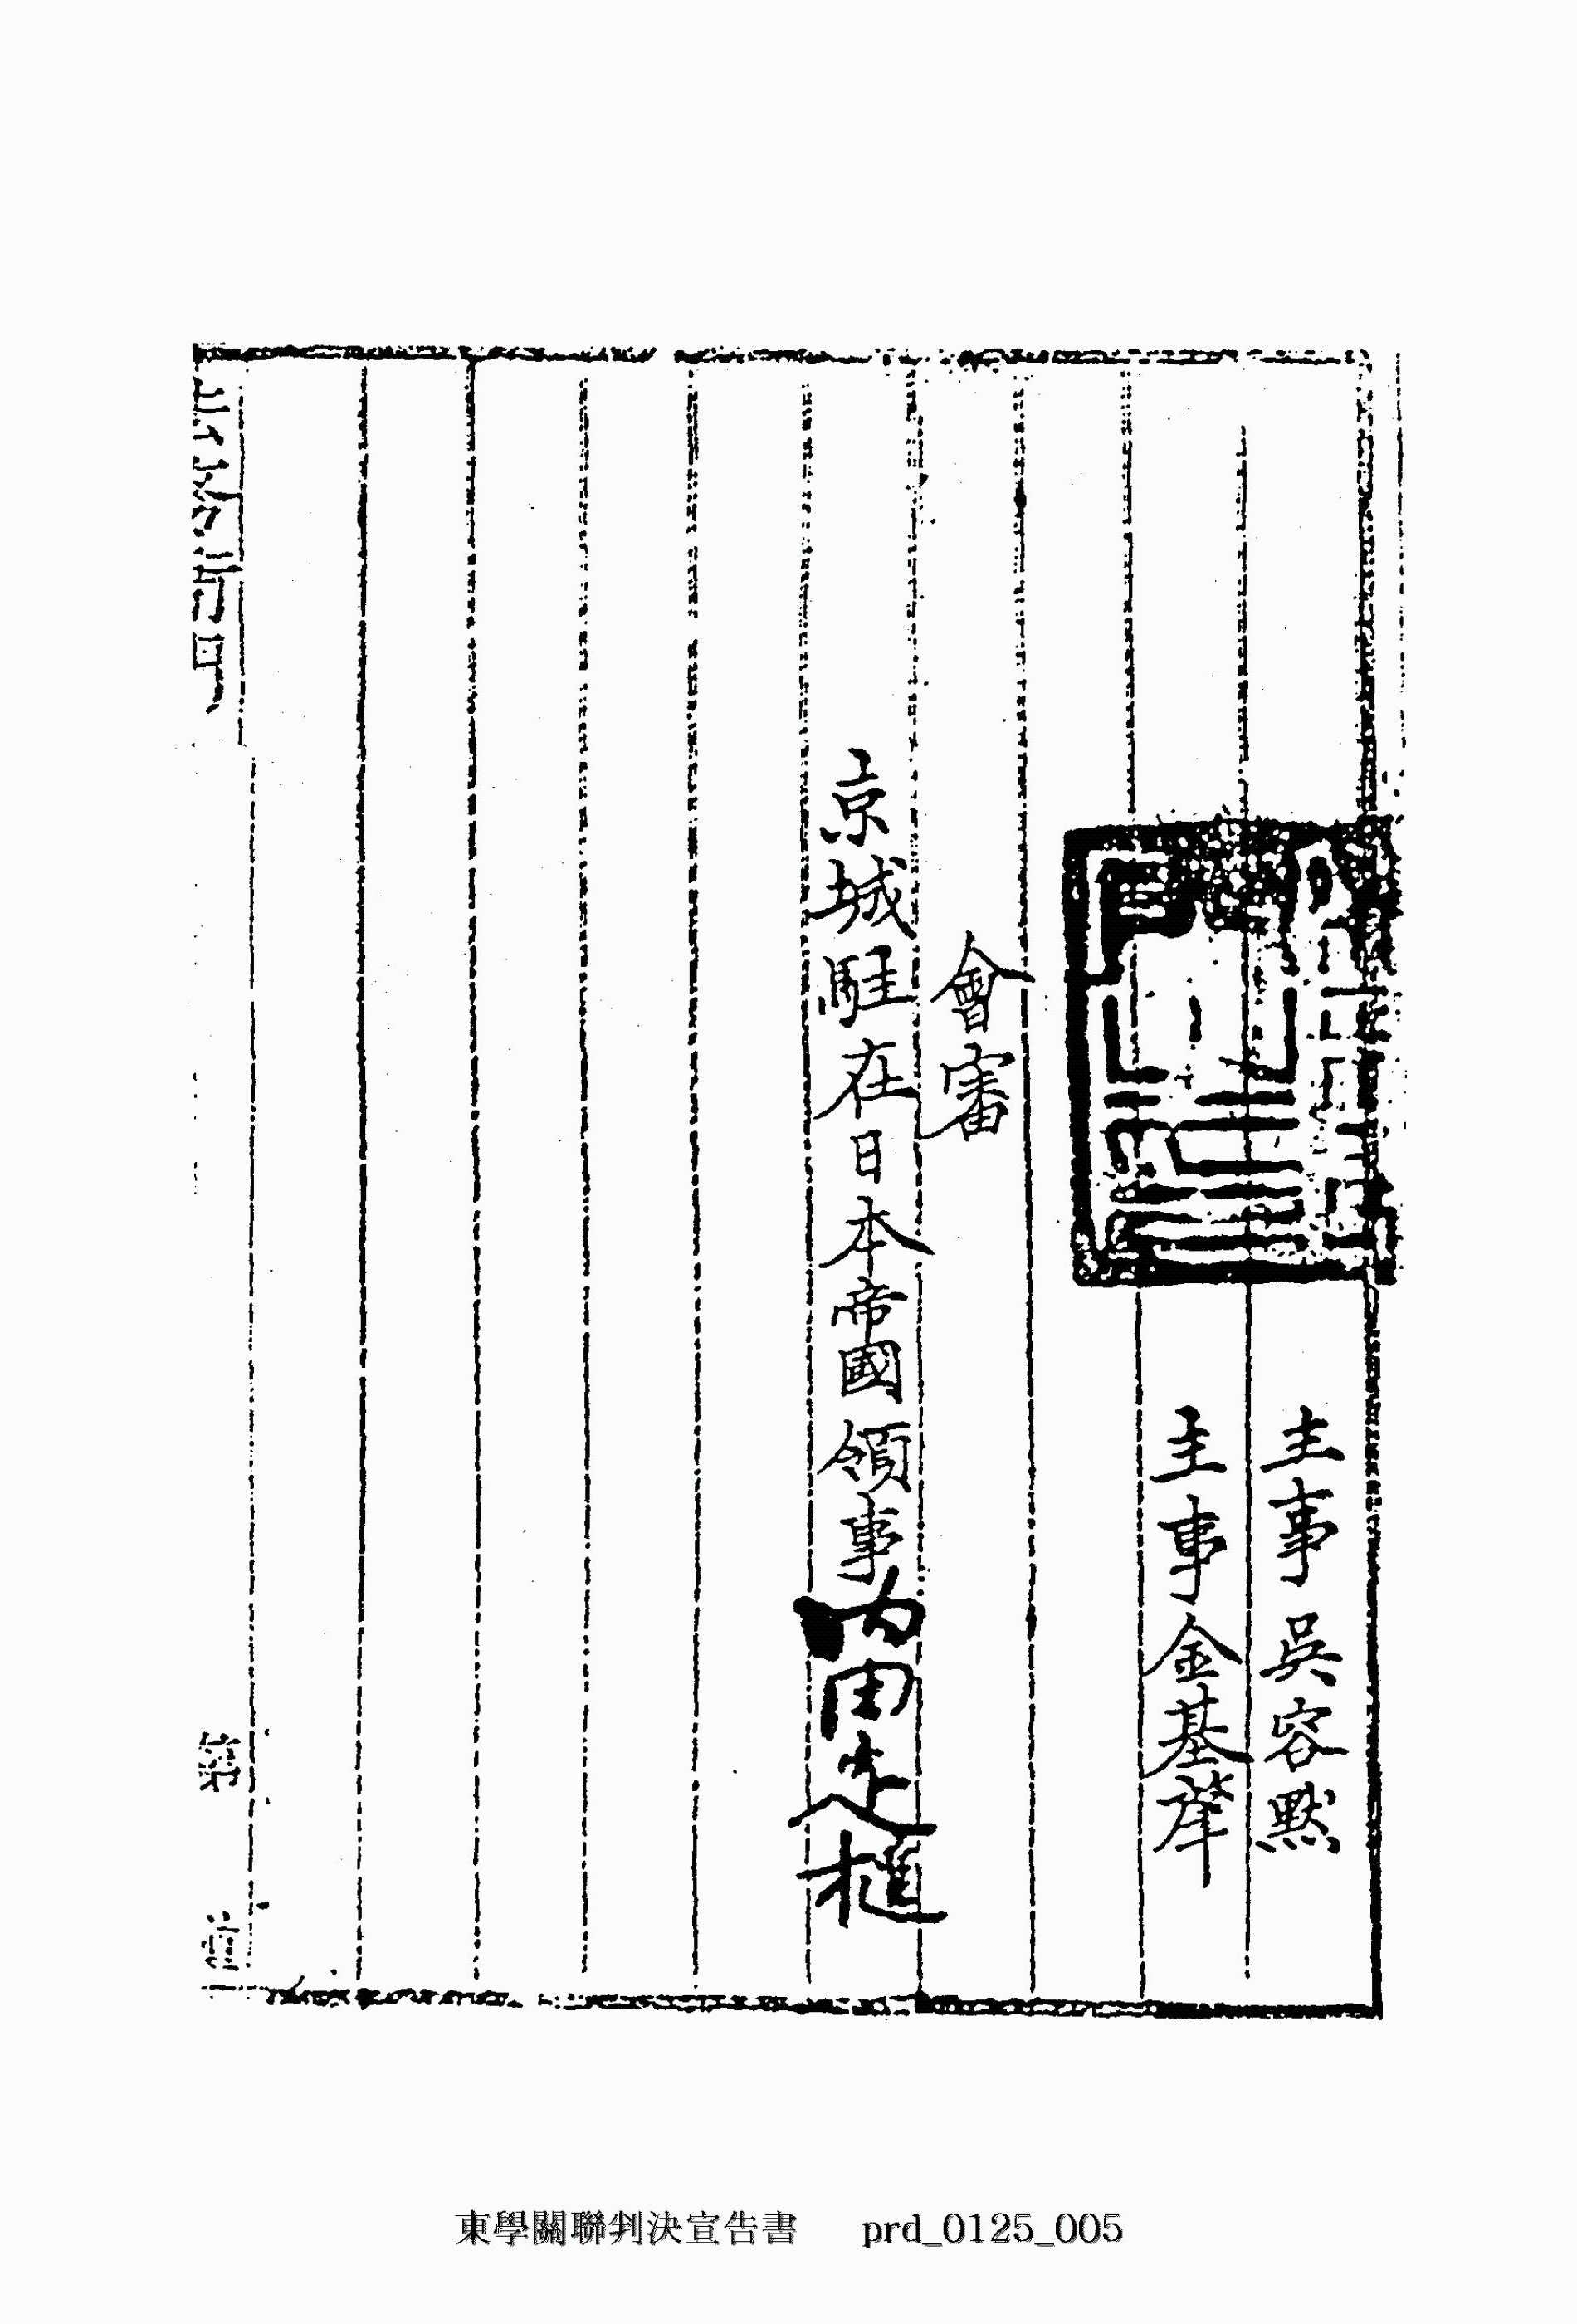 主事 吳容默
主事 金基肇
會審
京城駐在日本帝國領事 內田定槌
第
東學關聯判決宣告書 prd_0125_005